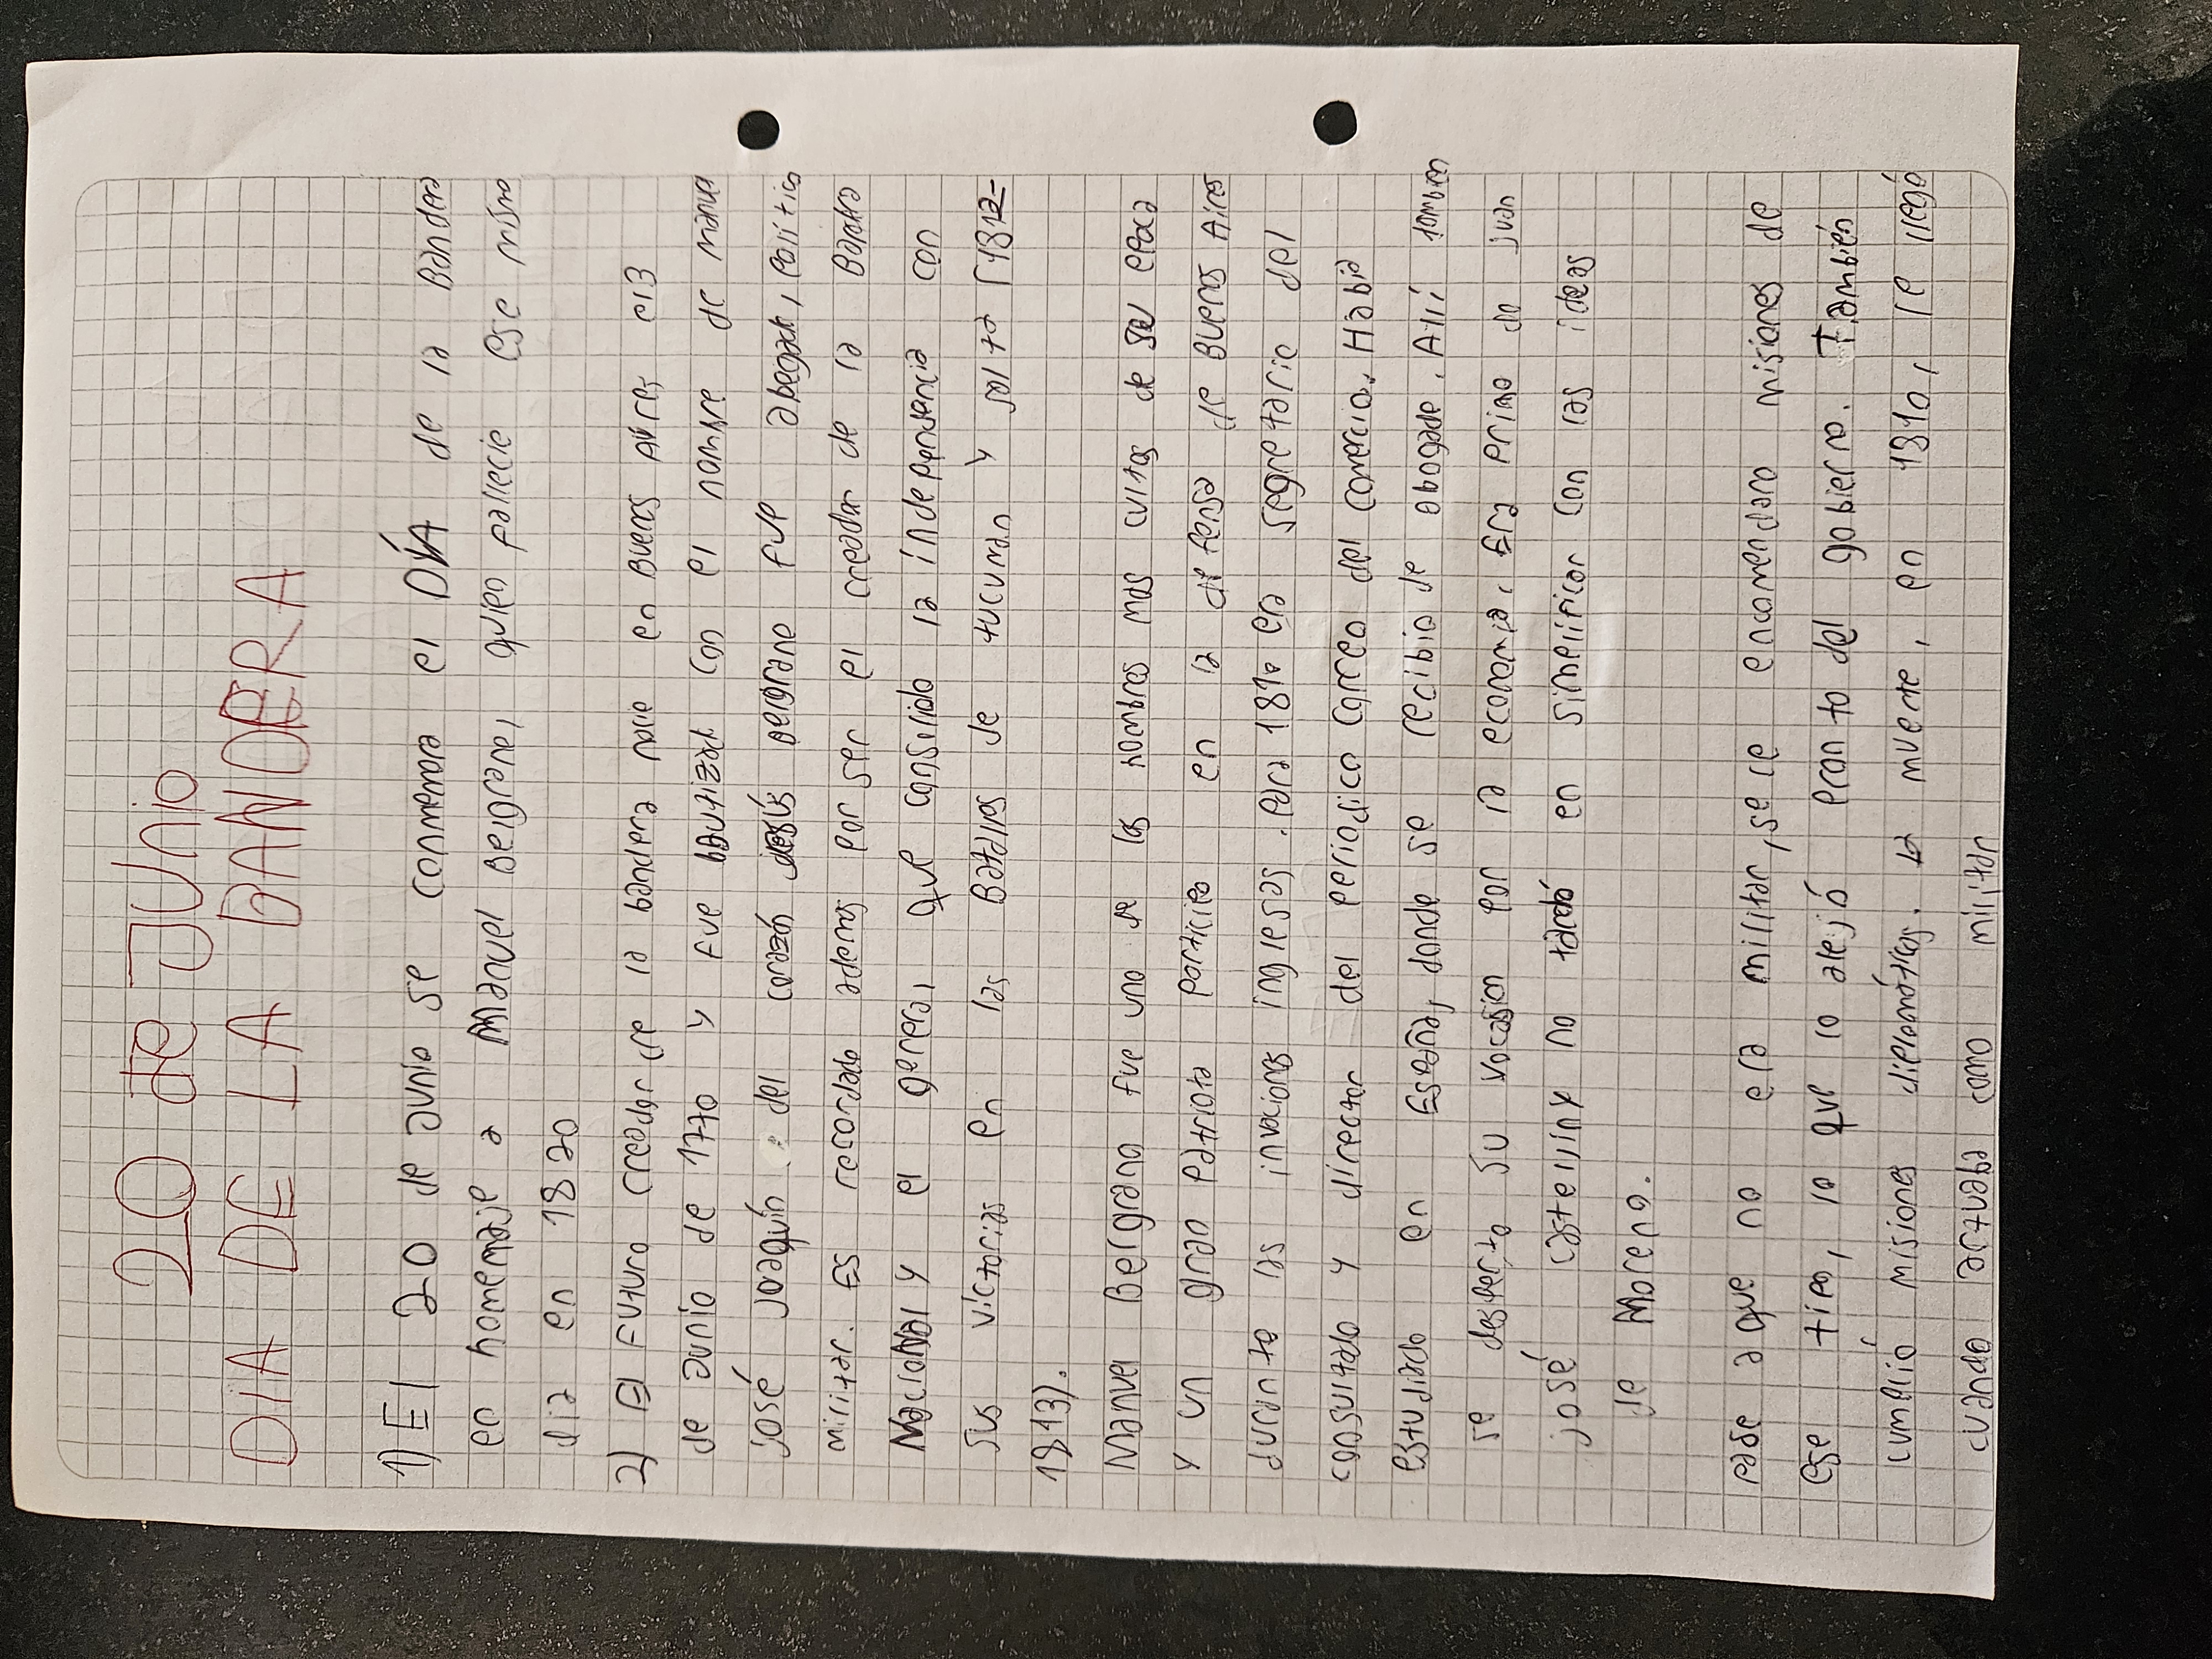 20 de JUNIO
DIA DE LA BANDERA
1) El 20 de Junio se conmemora el DÍA de la Bandera
en homemaje a Manuel Belgrano, quien fallecio ese mismo
dia en 1820
2) El futuro creador de la bandera nacio en Buenos Aires el 3
de Junio de 1770 y fue bautizado con el nombre de Manuel
José Joaquín del corazón de Jesús Belgrano fue abogado, Politico
militar. Es recordado ademas por ser el creador de la Bandera
Nacional y el general que consolido la independencia con
sus victorias en las Batallas de tucuman y salta (1812-
1813).
Manuel Bergrano fue uno de los hombres mas cultos de su epoca
y un gran patriota participo en la defensa de Buenos Aires
durante las invacions inglesas. Para 1810 era segretario del
consultado y director del periodico Correo del Comercio. Había
estudiado en España, donde se recibio de abogado. Allí tambien
se desperto su vocasión por la economia. Era primo de juan
josé Castelli y no tardó en simpifican con las ideas
de Moreno.
Pase a que no era militar, se le encomendaro misiones de
ese tipo, lo que lo alejó pronto del gobierno. También
cumplió misiones diplomáticas. La muerte, en 1810, le llegó
cuando actuaba como militar